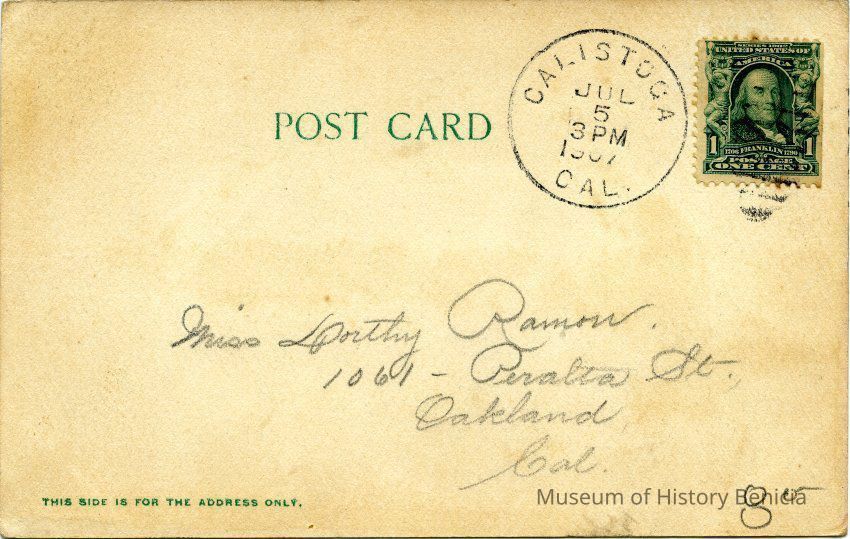 POST CARD
CALISTOGA
JUL
5
3PM
1907
CAL.
SERIES 1902
UNITED STATES OF
AMERICA
1 1706 FRANKLIN 1790 1
POSTAGE
ONE CENT
Miss Dorthy Ramon.
1061 - Peralta St.,
Oakland,
Cal.
THIS SIDE IS FOR THE ADDRESS ONLY.
Museum of History Benicia